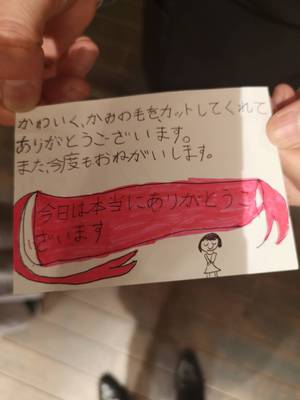 かわいく、かみの毛を、カットしてくれて
ありがとうございます。
また、今度もおねがいします。
今日は本当にありがとうご
ざいます